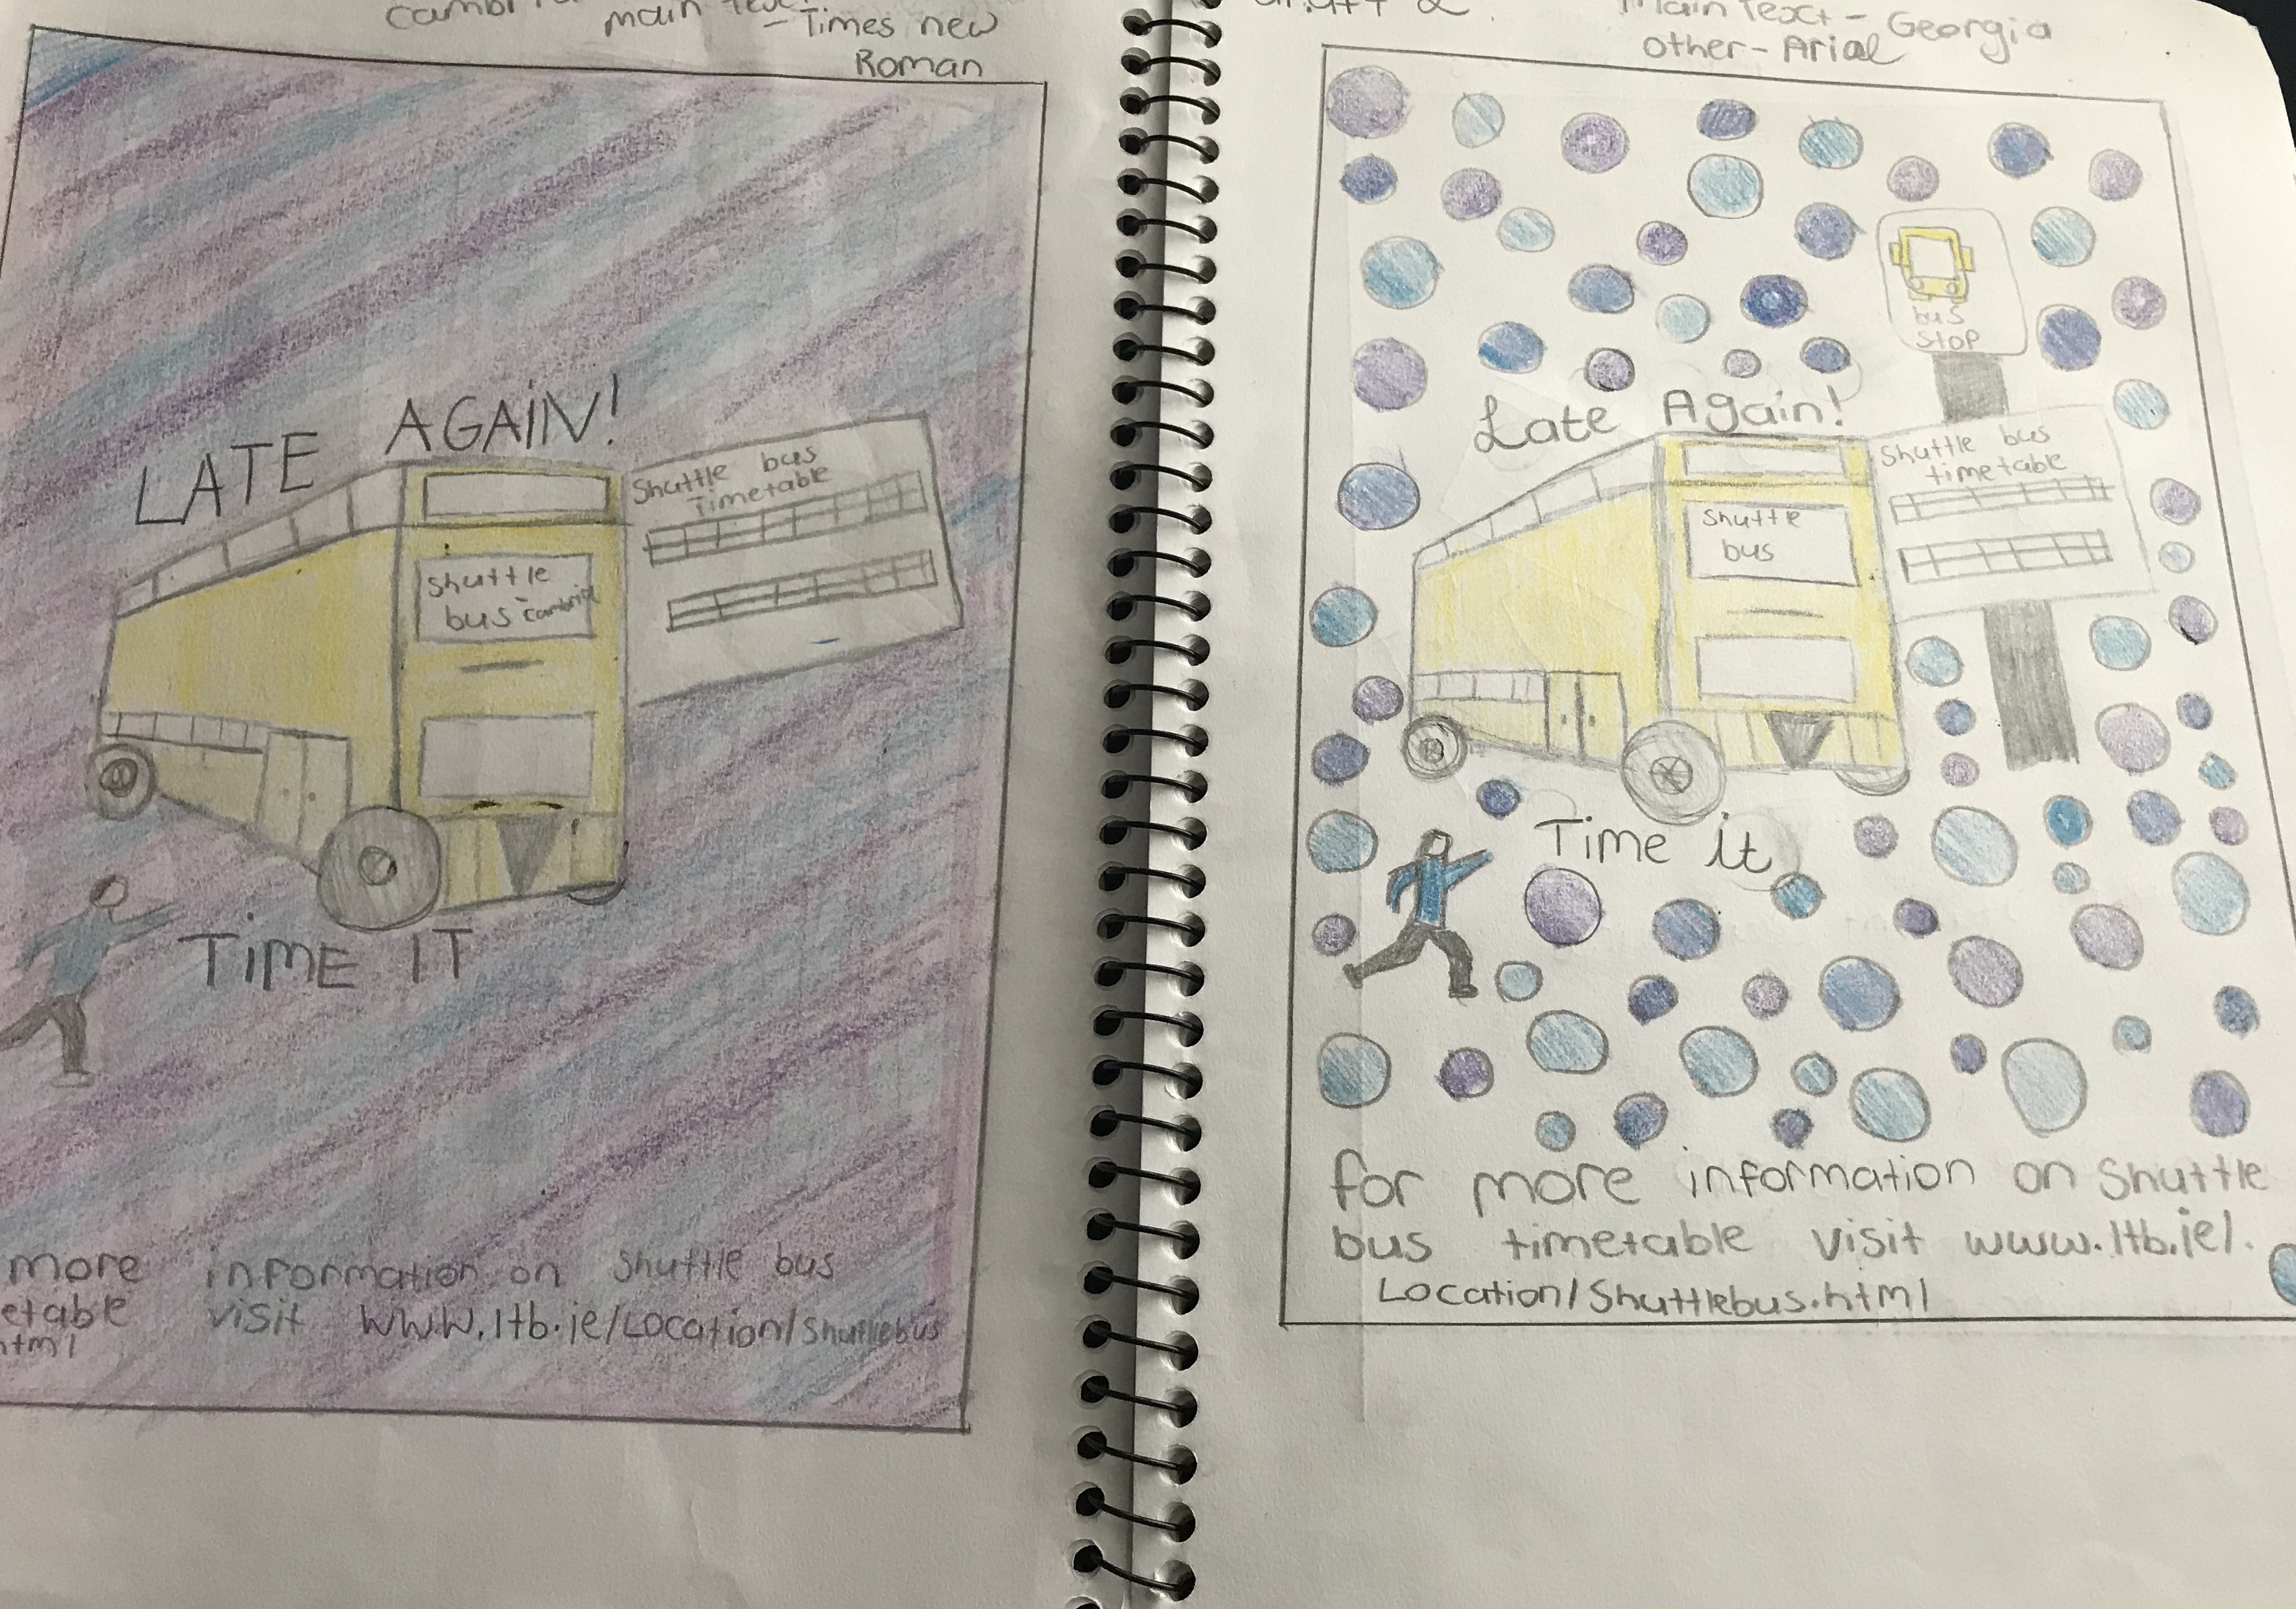 main text
- Times new
Roman
LATE AGAIN!
Shuttle bus
Timetable
Shuttle
bus
TIME IT
more information on Shuttle bus
etable visit www.ltb.ie/Location/Shuttlebus
html
draft 2.
Main Text - Georgia
Other - Arial
bus
stop
Late Again!
Shuttle bus
timetable
Shuttle
bus
Time it
for more information on Shuttle
bus timetable visit www.ltb.ie/.
Location/Shuttlebus.html